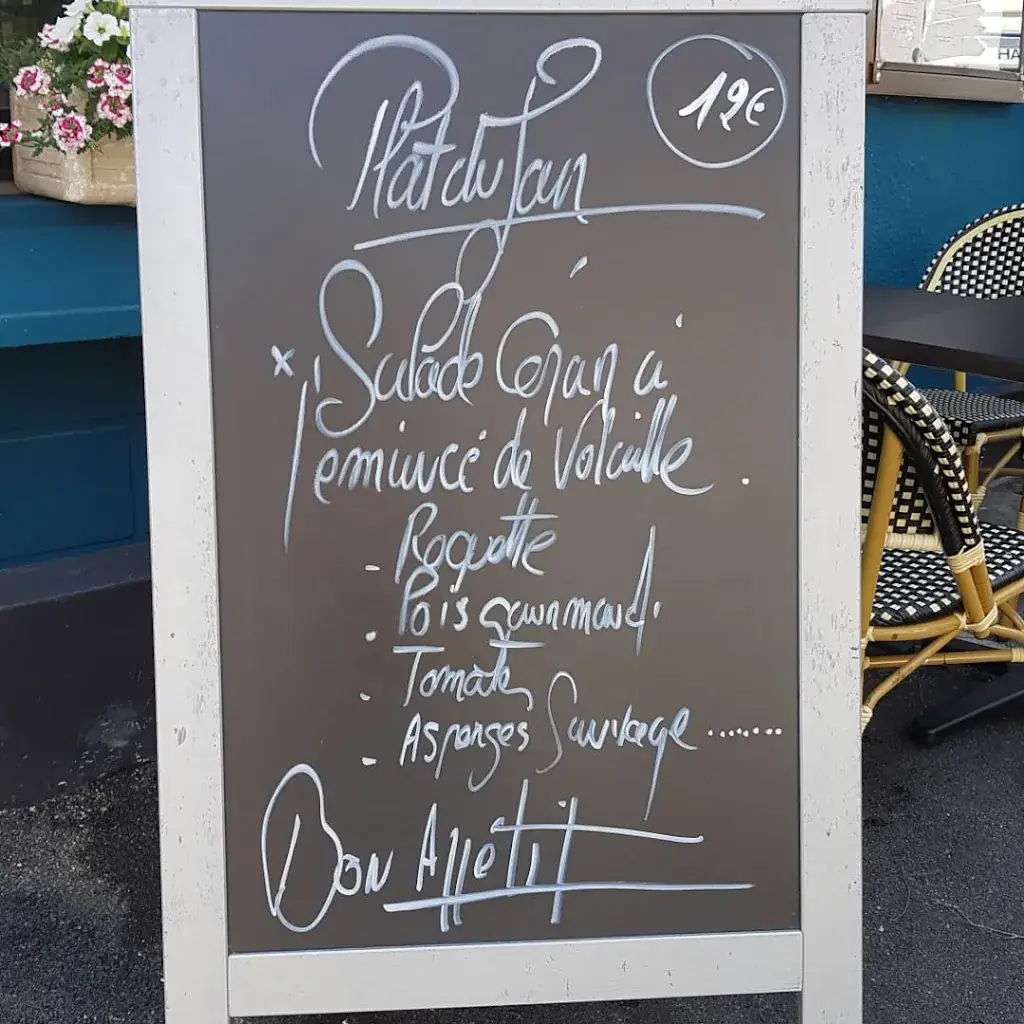 Plat du Jour
12€
Salade César à
l'émincé de Volaille.
- Roquette
- Pois gourmand
- Tomates
- Asperges Sauvage.......
Bon Appétit